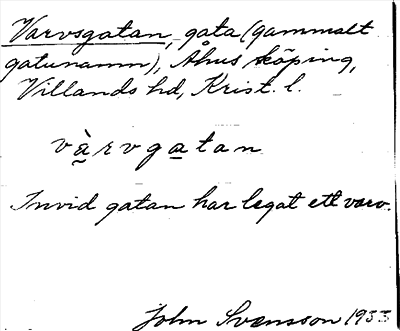 Varvsgatan, gata (gammalt
gatunamn), Åhus köping,
Villands hd, Krist. l.
vàrvgatan
Invid gatan har legat ett varv.
John Svensson 1933